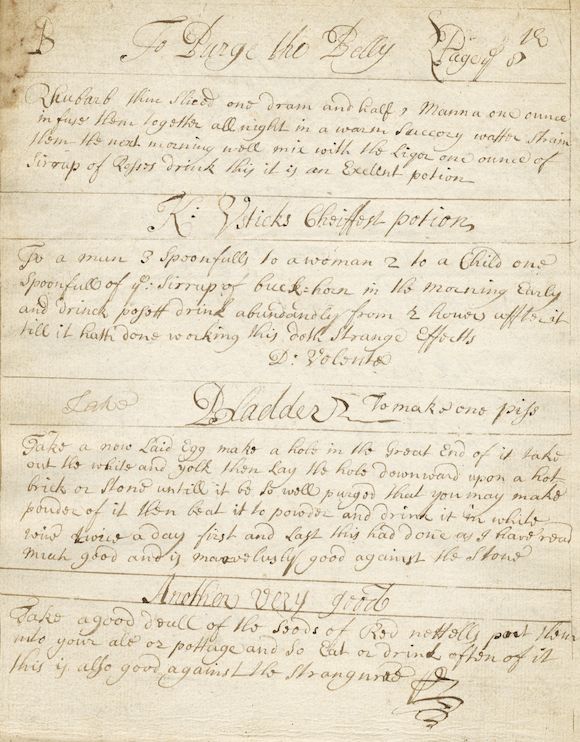 B To Purge the Belly Page ye 8 12
Rhubarb thin sliced one dram and half, Manna one ounce
infuse them together all night in a warm Succory watter strain
them the next morning well mix with the liqor one ounce of
Sirrup of Roses drink this it is an Exelent potion
K: Vsticks Cheiffest potion
To a man 3 Spoonfulls to a woman 2 to a Child one
Spoonfull of ye: Sirrup of buck=horn in the morning Early
and drinck posett drink abundandly from 2 hour affter it
till it hath done working this doth strange Effects
D: Volente
Bladder To make one piss
Take a new Laid Egg make a hole in the Great End of it take
out the white and yolk then Lay the hole downward upon a hot
brick or Stone untill it be so well purged that you may make
pouder of it then beat it to powder and drink it in white
wine twice a day first and Last this had done as I have read
much good and is marvelusly good against the Stone
Another very good
Take a good deall of the seeds of Red nettells put them
into your ale or pottage and so Eat or drink often of it
this is also good against the strangurae